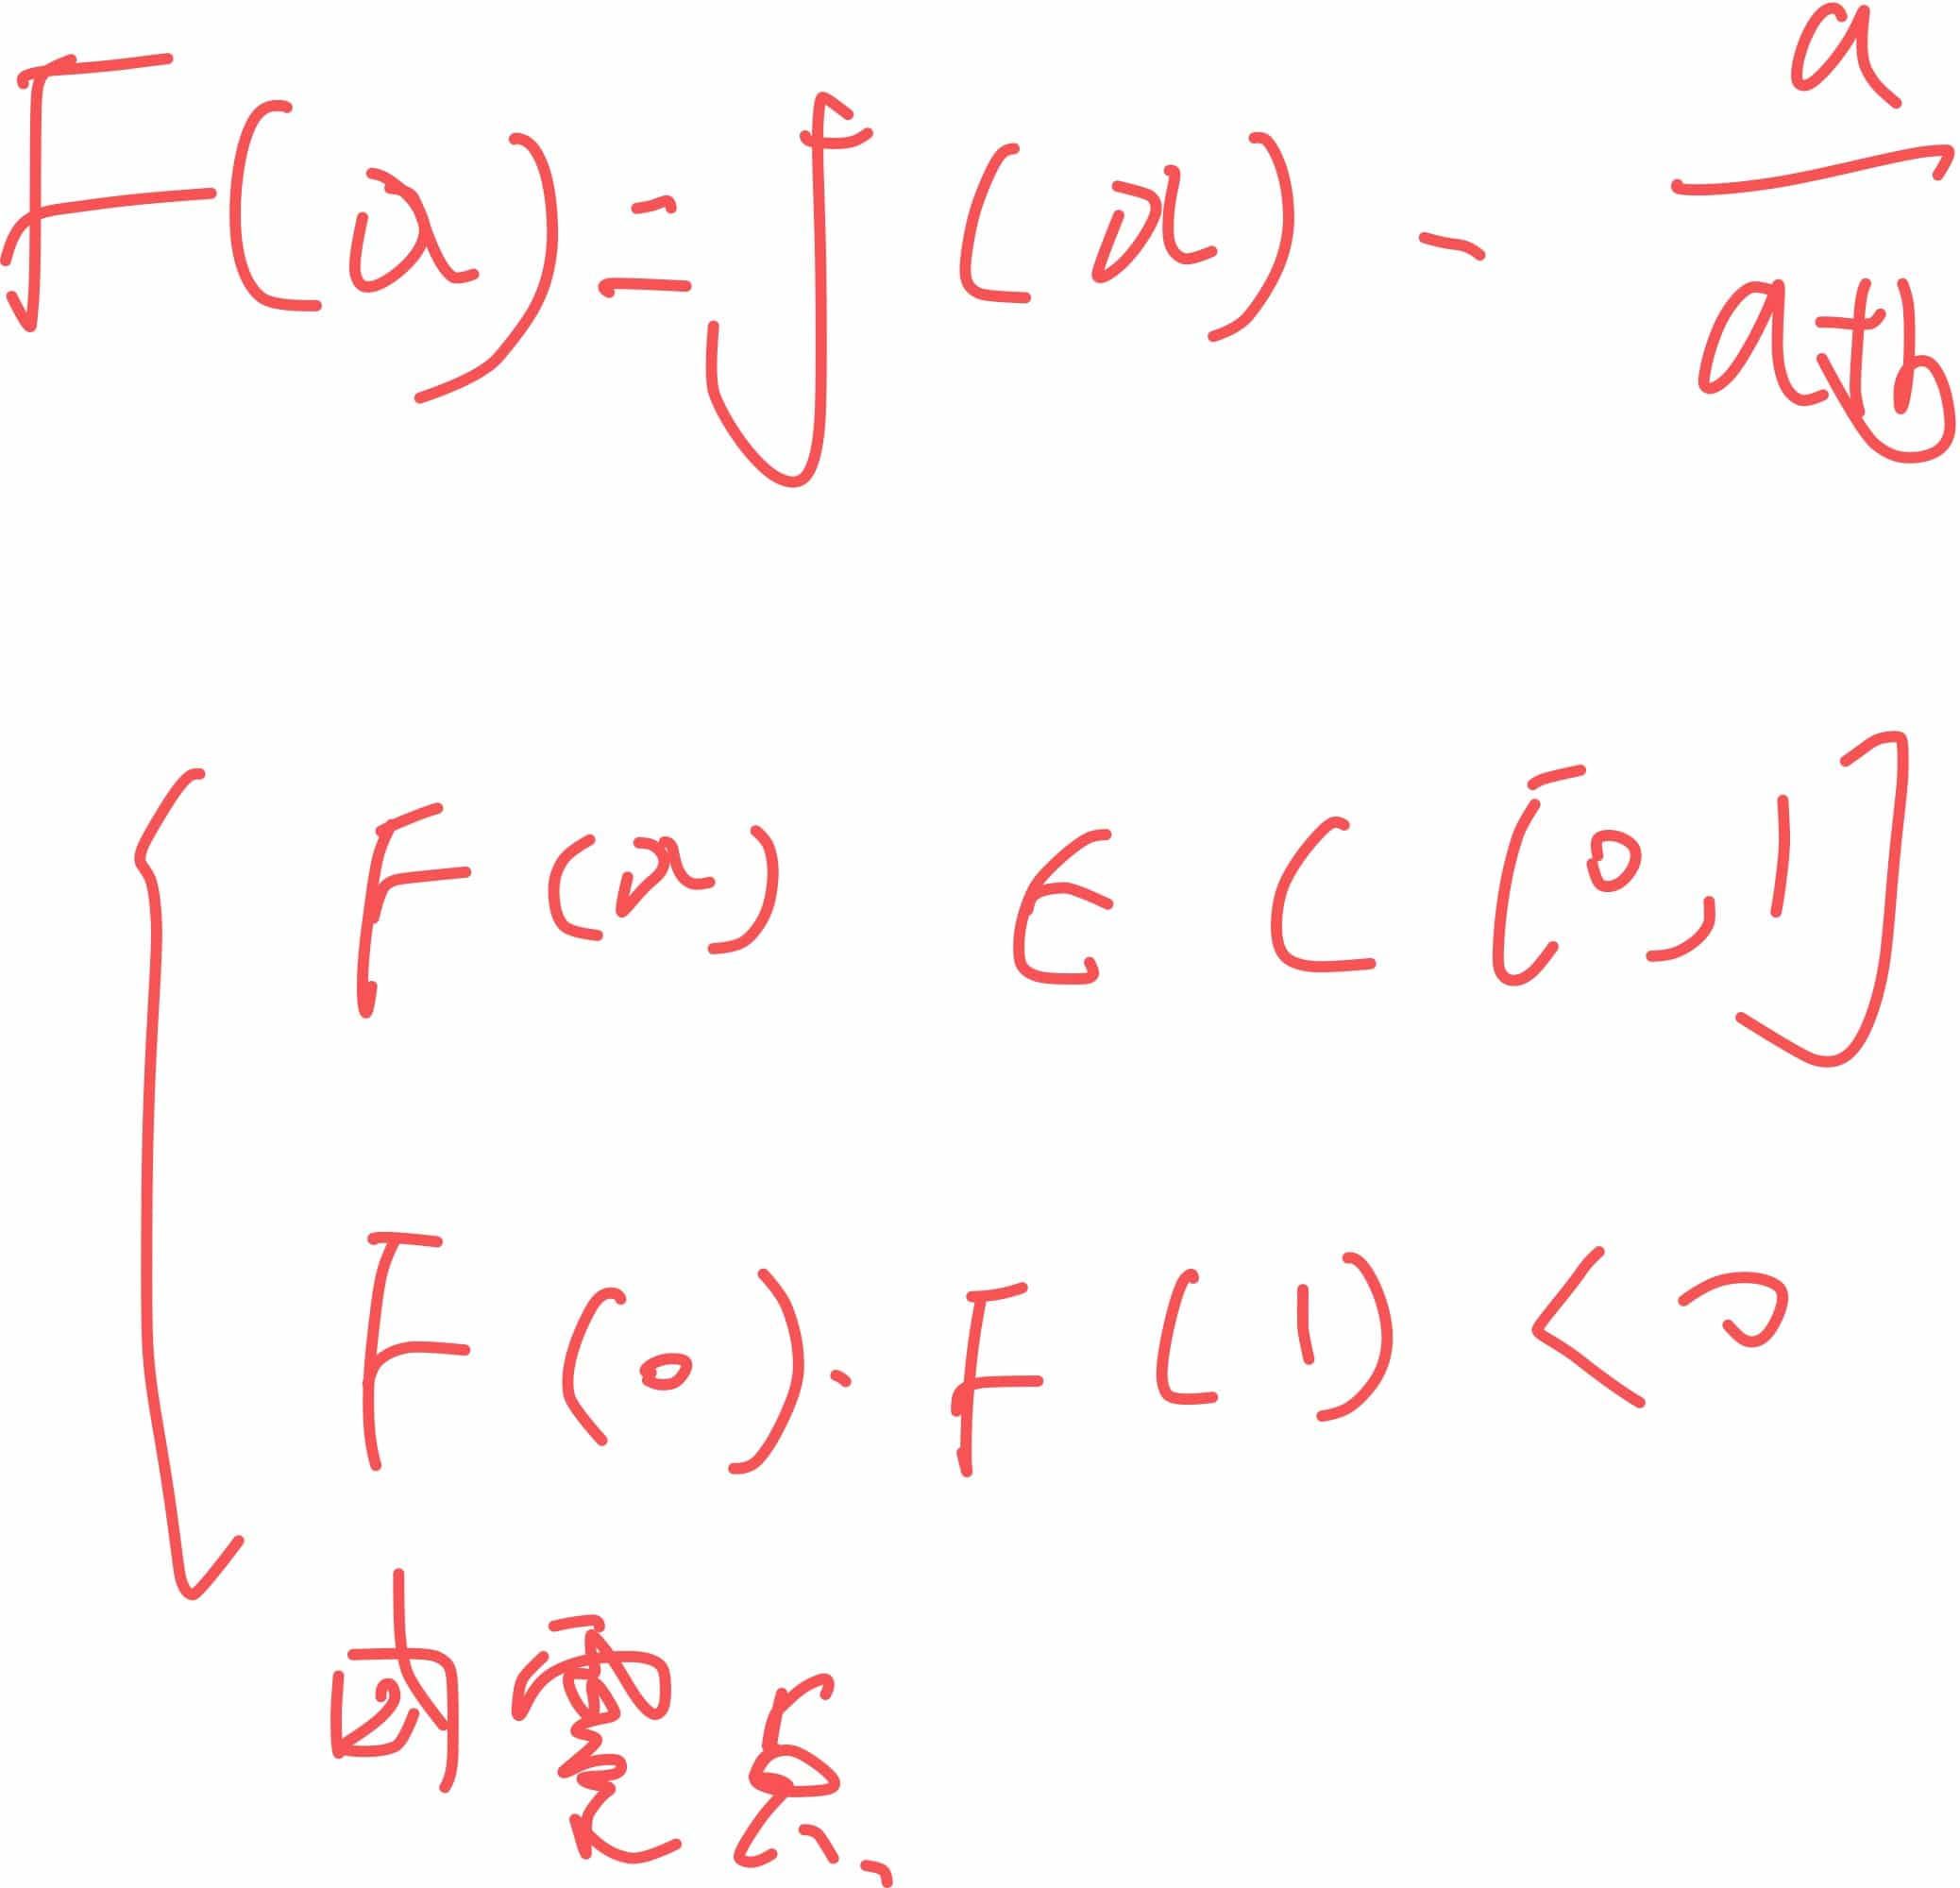 F(x) = f(x) - a/(a+b)
F(x) ∈ C[0,1]
F(0)·F(1) < 0
由零点